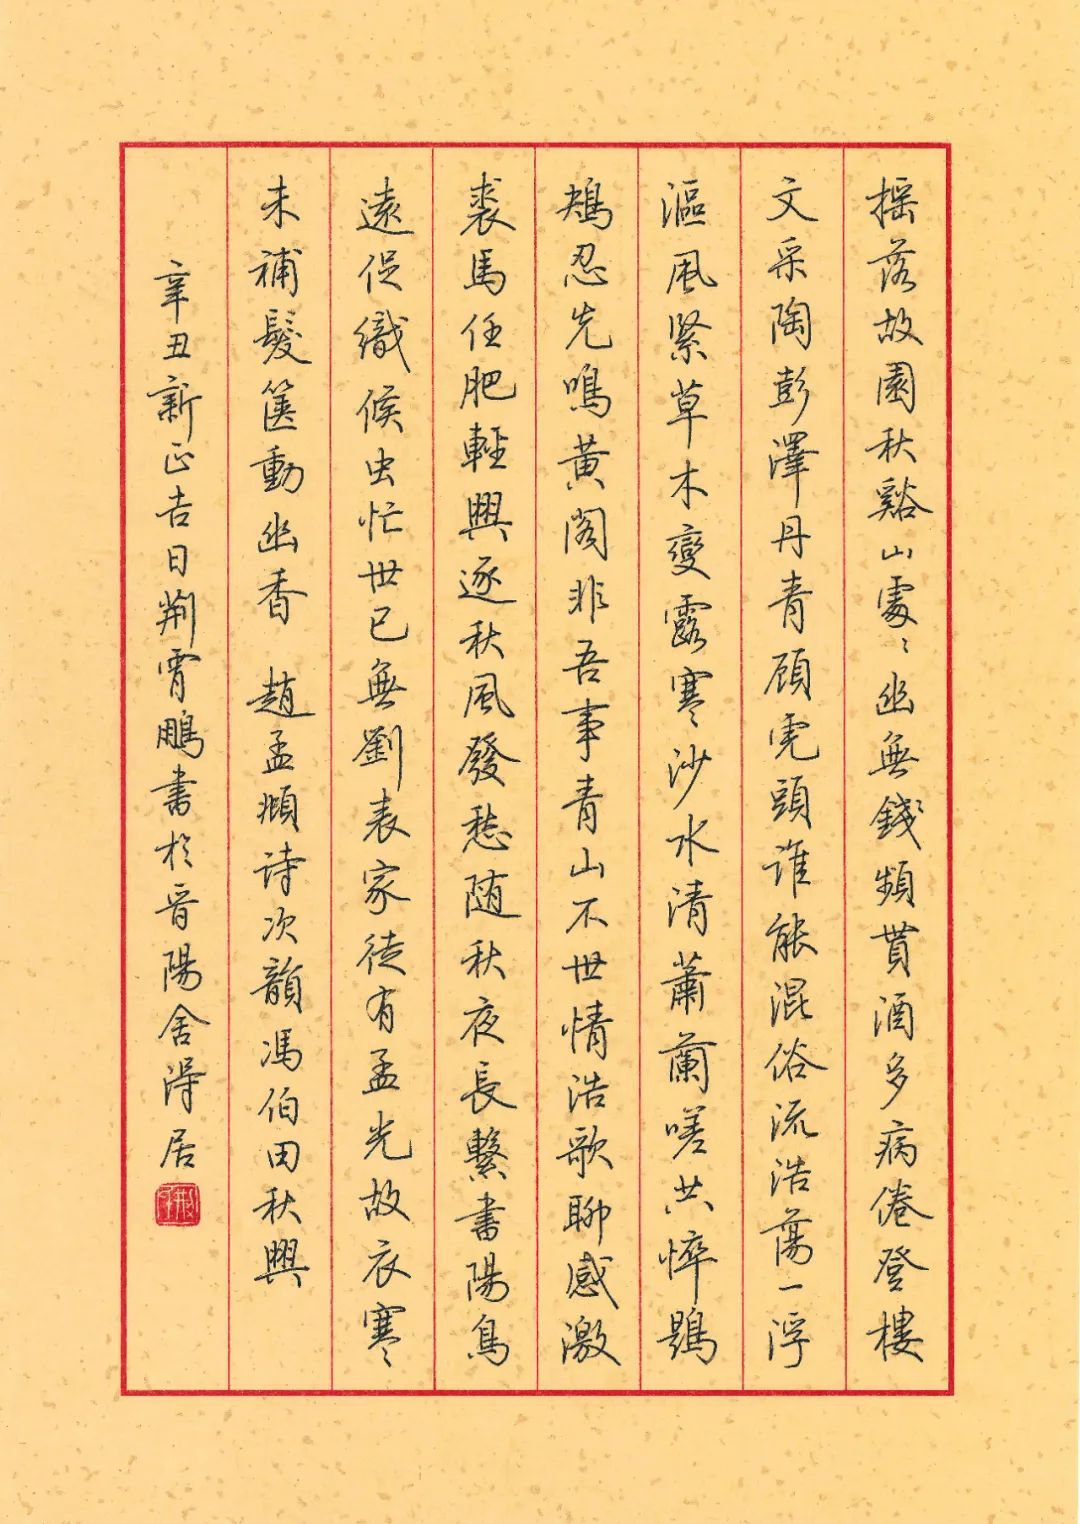 摇落故園秋谿山處〻幽無錢頻貰酒多病倦登樓
文采陶彭澤丹青顧虎頭谁能混俗流浩蕩一浮
漚風緊草木變露寒沙水清蕭蘭嗟共悴鶗
鴂忍先鳴黄阁非吾事青山不世情浩歌聊感激
裘馬任肥輕興逐秋風發愁随秋夜長繫書陽鳥
遠促織候虫忙世已無劉表家徒有孟光故衣寒
未補髮篋動幽香 趙孟頫诗次韻馮伯田秋興
辛丑新正吉日荆霄鵬書於晉陽舍得居